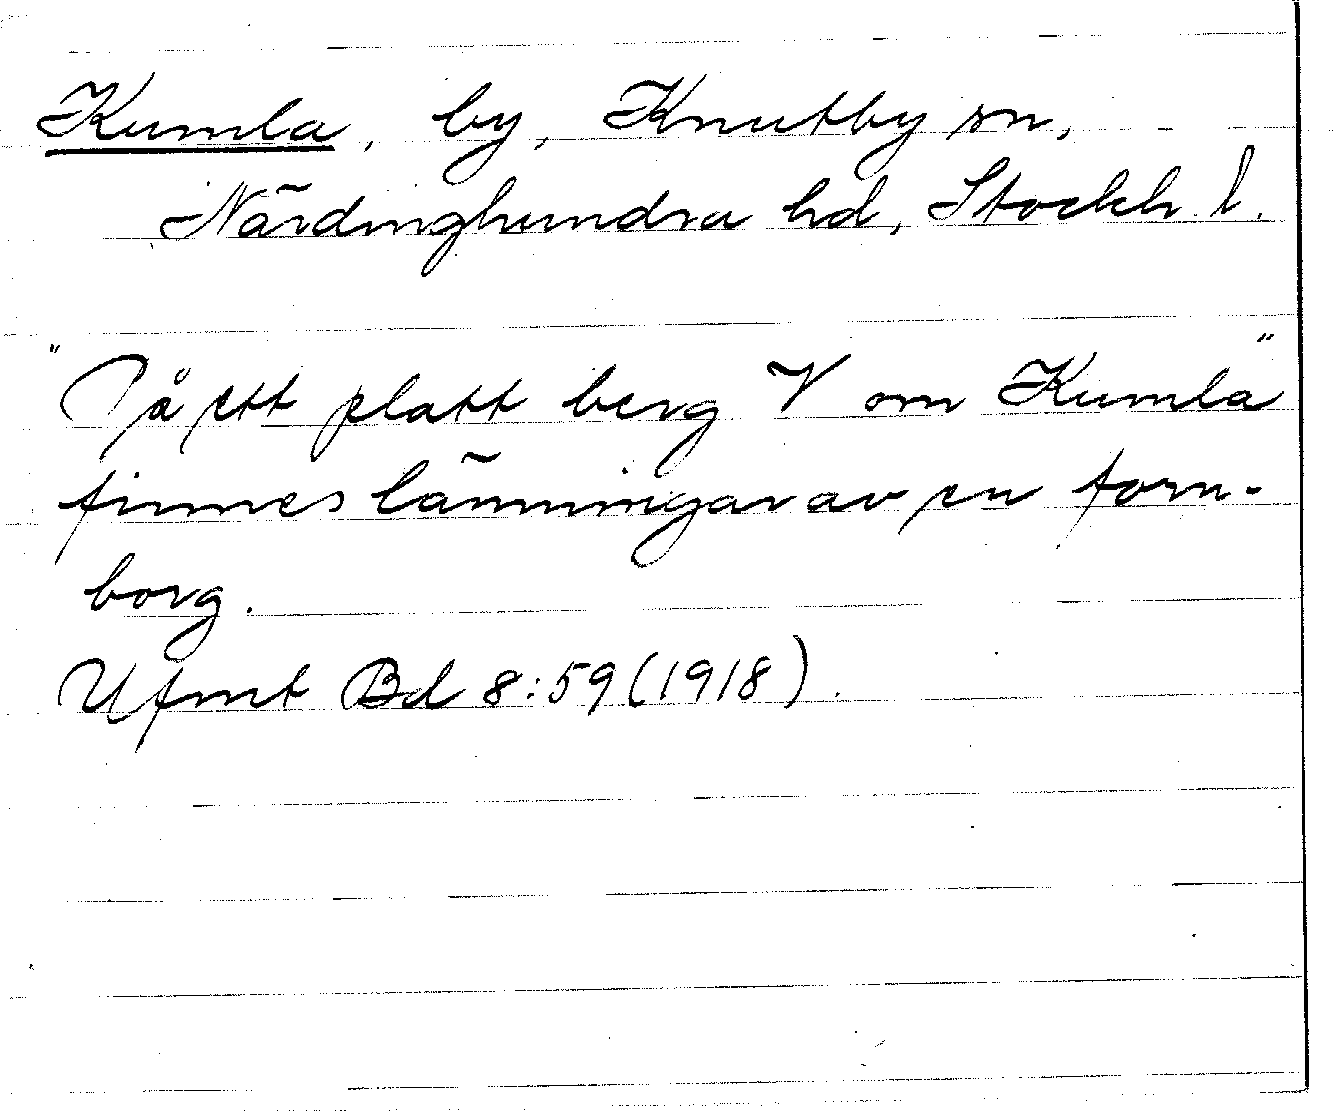 Kumla, by, Knutby sn,
Närdinghundra hd, Stockh. l.
"På ett platt berg V om Kumla"
finnes lämningar av en forn-
borg.
Ufmt Bd 8:59 (1918).